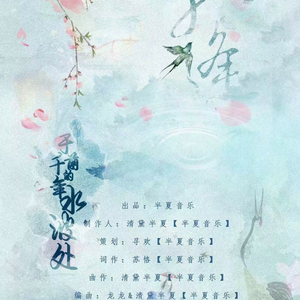 出品：半夏音乐
制作人：清黛半夏【半夏音乐】
策划：寻欢【半夏音乐】
词作：苏恪【半夏音乐】
曲作：清黛半夏【半夏音乐】
编曲：龙龙&清黛半夏【半夏音乐】